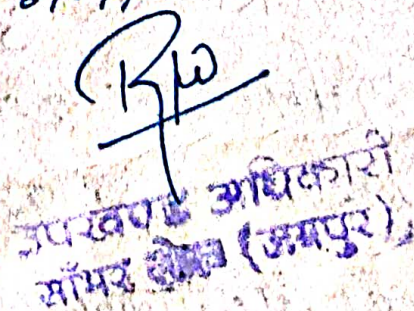 उपखण्ड अधिकारी
सांभर लेक (जयपुर)